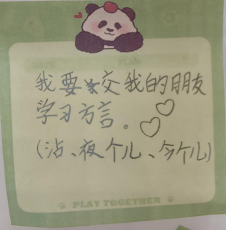 我要交我的朋友
学习方言。
(沾、夜个儿、今个儿)
PLAY TOGETHER